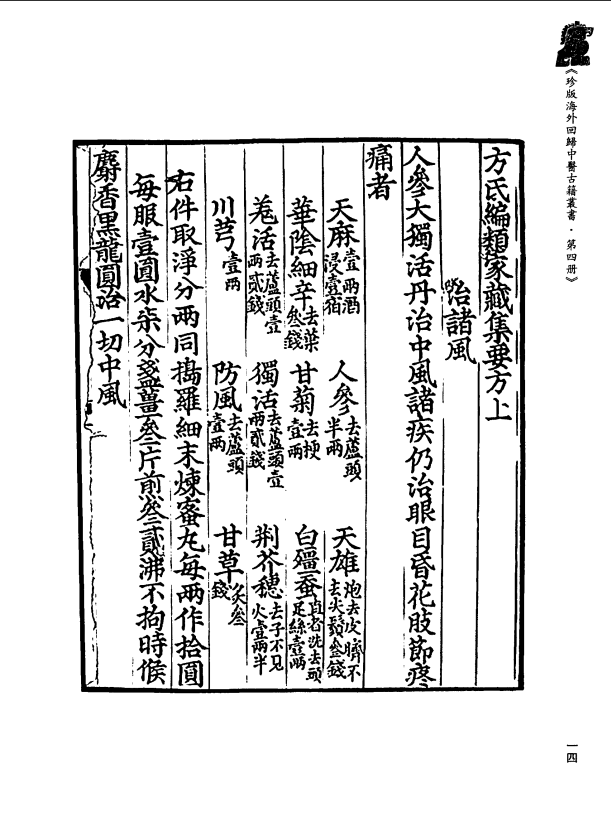 《珍版海外回歸中醫古籍叢書·第四册》
方氏編類家藏集要方上
治諸風
人參大獨活丹治中風諸疾仍治眼目昏花肢節疼
痛者
天麻壹兩酒浸壹宿 人參去蘆頭半兩 天雄炮去皮臍不去尖鬚叄錢
華陰細辛去葉叄錢 甘菊去梗壹兩 白殭蠶直者洗去頭足絲壹兩
羗活去蘆頭壹兩貳錢 獨活去蘆頭壹兩貳錢 荆芥穗去子不見火壹兩半
川芎壹兩 防風去蘆頭壹兩 甘草炙叄錢
右件取淨分兩同擣羅細末煉蜜丸每兩作拾圓
每服壹圓水柒分盞薑叄片煎叄貳沸不拘時候
麝香黑龍圓治一切中風
一四